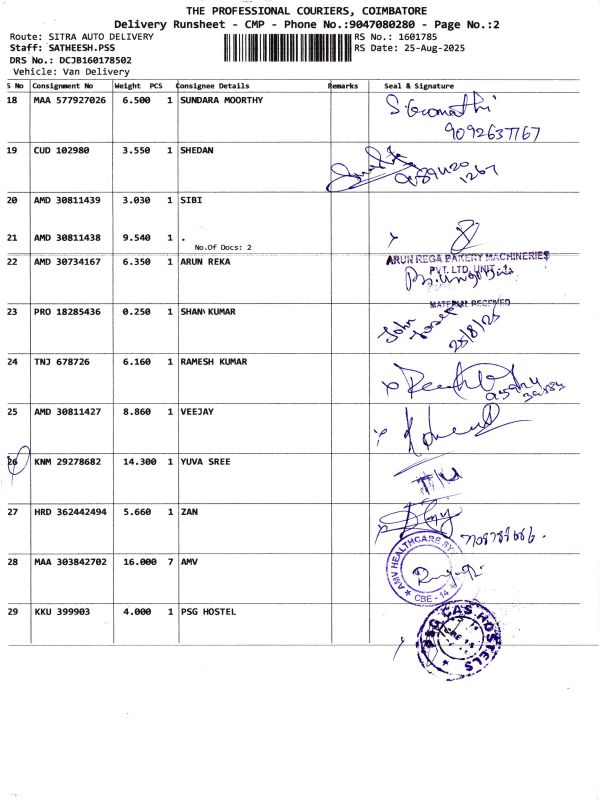 THE PROFESSIONAL COURIERS, COIMBATORE
Delivery Runsheet - CMP - Phone No.:9047080280 - Page No.:2
Route: SITRA AUTO DELIVERY
RS No.: 1601785
Staff: SATHEESH.PSS
RS Date: 25-Aug-2025
DRS No.: DCJB160178502
Vehicle: Van Delivery
S No Consignment No Weight PCS Consignee Details Remarks Seal & Signature
18 MAA 577927026 6.500 1 SUNDARA MOORTHY
9092637767
19 CUD 102980 3.550 1 SHEDAN
1267
20 AMD 30811439 3.030 1 SIBI
21 AMD 30811438 9.540 1 .
No.Of Docs: 2
22 AMD 30734167 6.350 1 ARUN REKA
ARUN REGA BAKERY MACHINERIES
PVT. LTD, UNIT
MATERIAL RECEIVED
23 PRO 18285436 0.250 1 SHAN KUMAR
John
Joseph
25/8/25
24 TNJ 678726 6.160 1 RAMESH KUMAR
25 AMD 30811427 8.860 1 VEEJAY
26 KNM 29278682 14.300 1 YUVA SREE
27 HRD 362442494 5.660 1 ZAN
28 MAA 303842702 16.000 7 AMV
AMV HEALTHCARE SY
CBE - 14
29 KKU 399903 4.000 1 PSG HOSTEL
PSG CAS HOSTELS